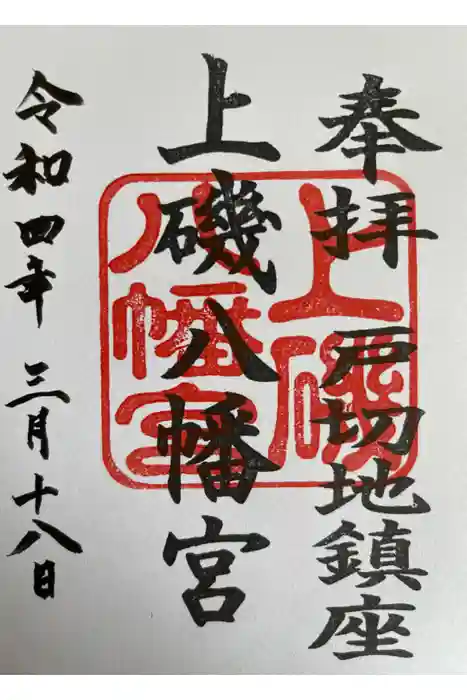 奉拝 戸切地鎮座
上磯八幡宮
令和四年 三月十八日
上磯
八幡宮